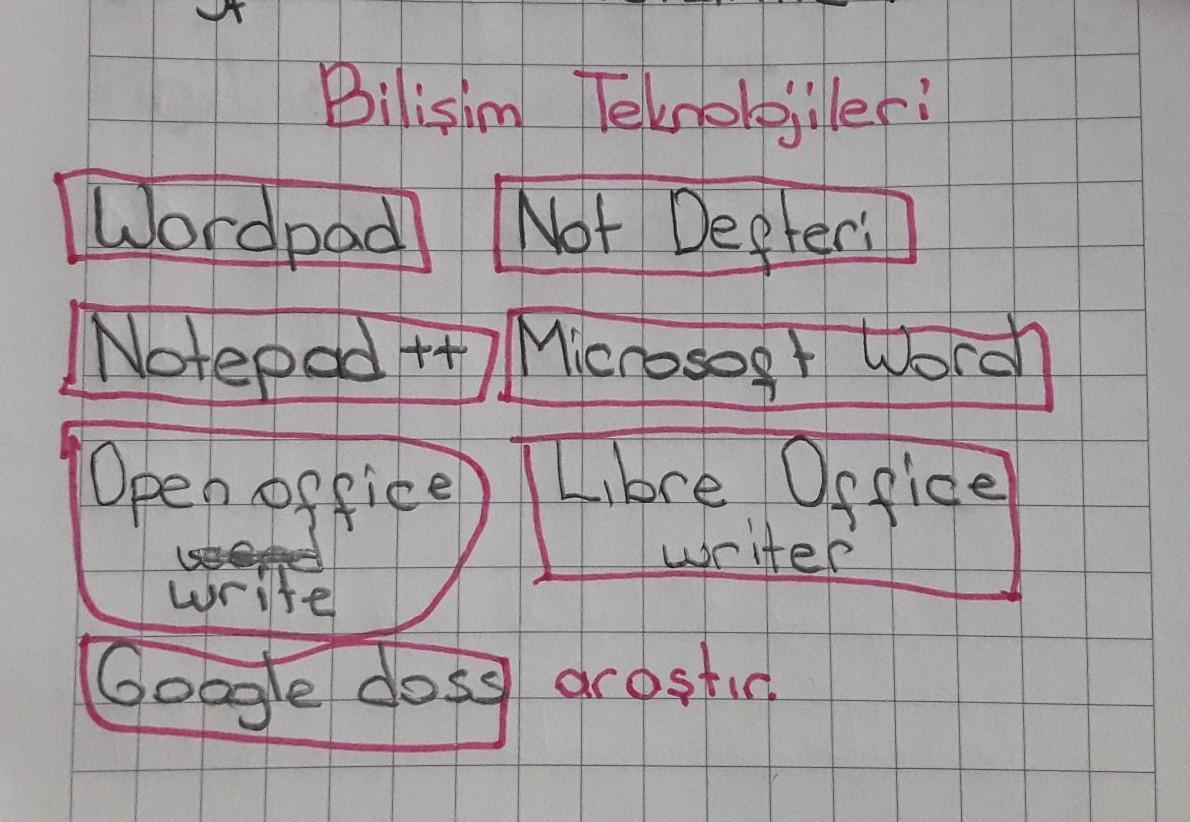 Bilişim Teknolojileri
Wordpad
Not Defteri
Notepad ++
Microsoft Word
Open office
write
Libre Office
writer
Google doss
araştır.